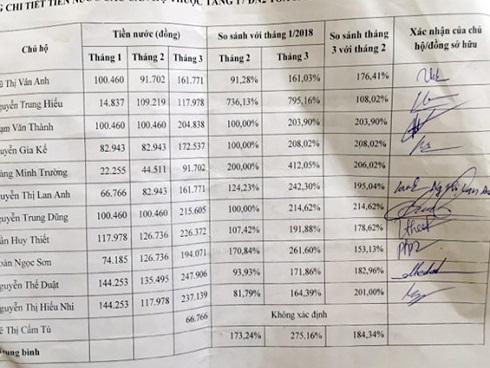 CHI TIẾT TIỀN NƯỚC
Chủ hộ Tiền nước (đồng) So sánh với tháng 1/2018 So sánh tháng 3 với tháng 2 Xác nhận của chủ hộ/đồng sở hữu
Tháng 1 Tháng 2 Tháng 3 Tháng 2 Tháng 3
Thị Vân Anh 100.460 91.702 161.771 91,28% 161,03% 176,41%
Nguyễn Trung Hiếu 14.837 109.219 117.978 736,13% 795,16% 108,02%
Phạm Văn Thành 100.460 100.460 204.838 100,00% 203,90% 203,90%
Nguyễn Gia Kế 82.943 82.943 172.537 100,00% 208,02% 208,02%
Minh Trường 22.255 44.511 91.702 200,00% 412,05% 206,02%
Nguyễn Thị Lan Anh 66.766 82.943 161.771 124,23% 242,30% 195,04%
Nguyễn Trung Dũng 100.460 100.460 215.605 100,00% 214,62% 214,62%
Huy Thiết 117.978 126.736 226.372 107,42% 191,88% 178,62%
Ngọc Sơn 74.185 126.736 194.071 170,84% 261,60% 153,13%
Nguyễn Thế Duật 144.253 135.495 247.906 93,93% 171,86% 182,96%
Nguyễn Thị Hiếu Nhi 144.253 117.978 237.139 81,79% 164,39% 201,00%
Thị Cẩm Tú 66.766 Không xác định
Trung bình 173,24% 275,16% 184,34%